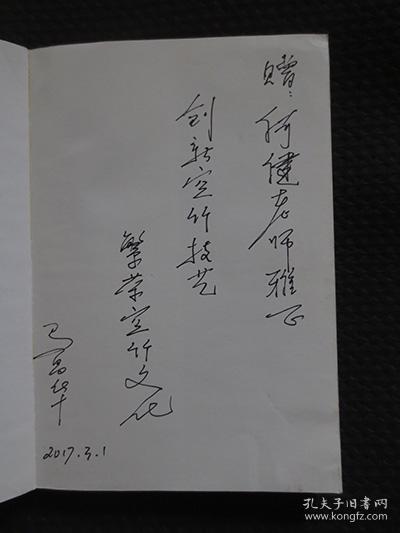 赠:何健老师雅正
创新宣竹技艺
繁荣宣竹文化
马昌华
2017.3.1
孔夫子旧书网
www.kongfz.com